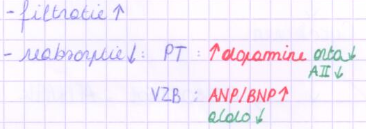 - filtratie ↑
- reabsorptie ↓ : PT : ↑ dopamine orta ↓
AII ↓
VZB : ANP/BNP ↑
aldo ↓